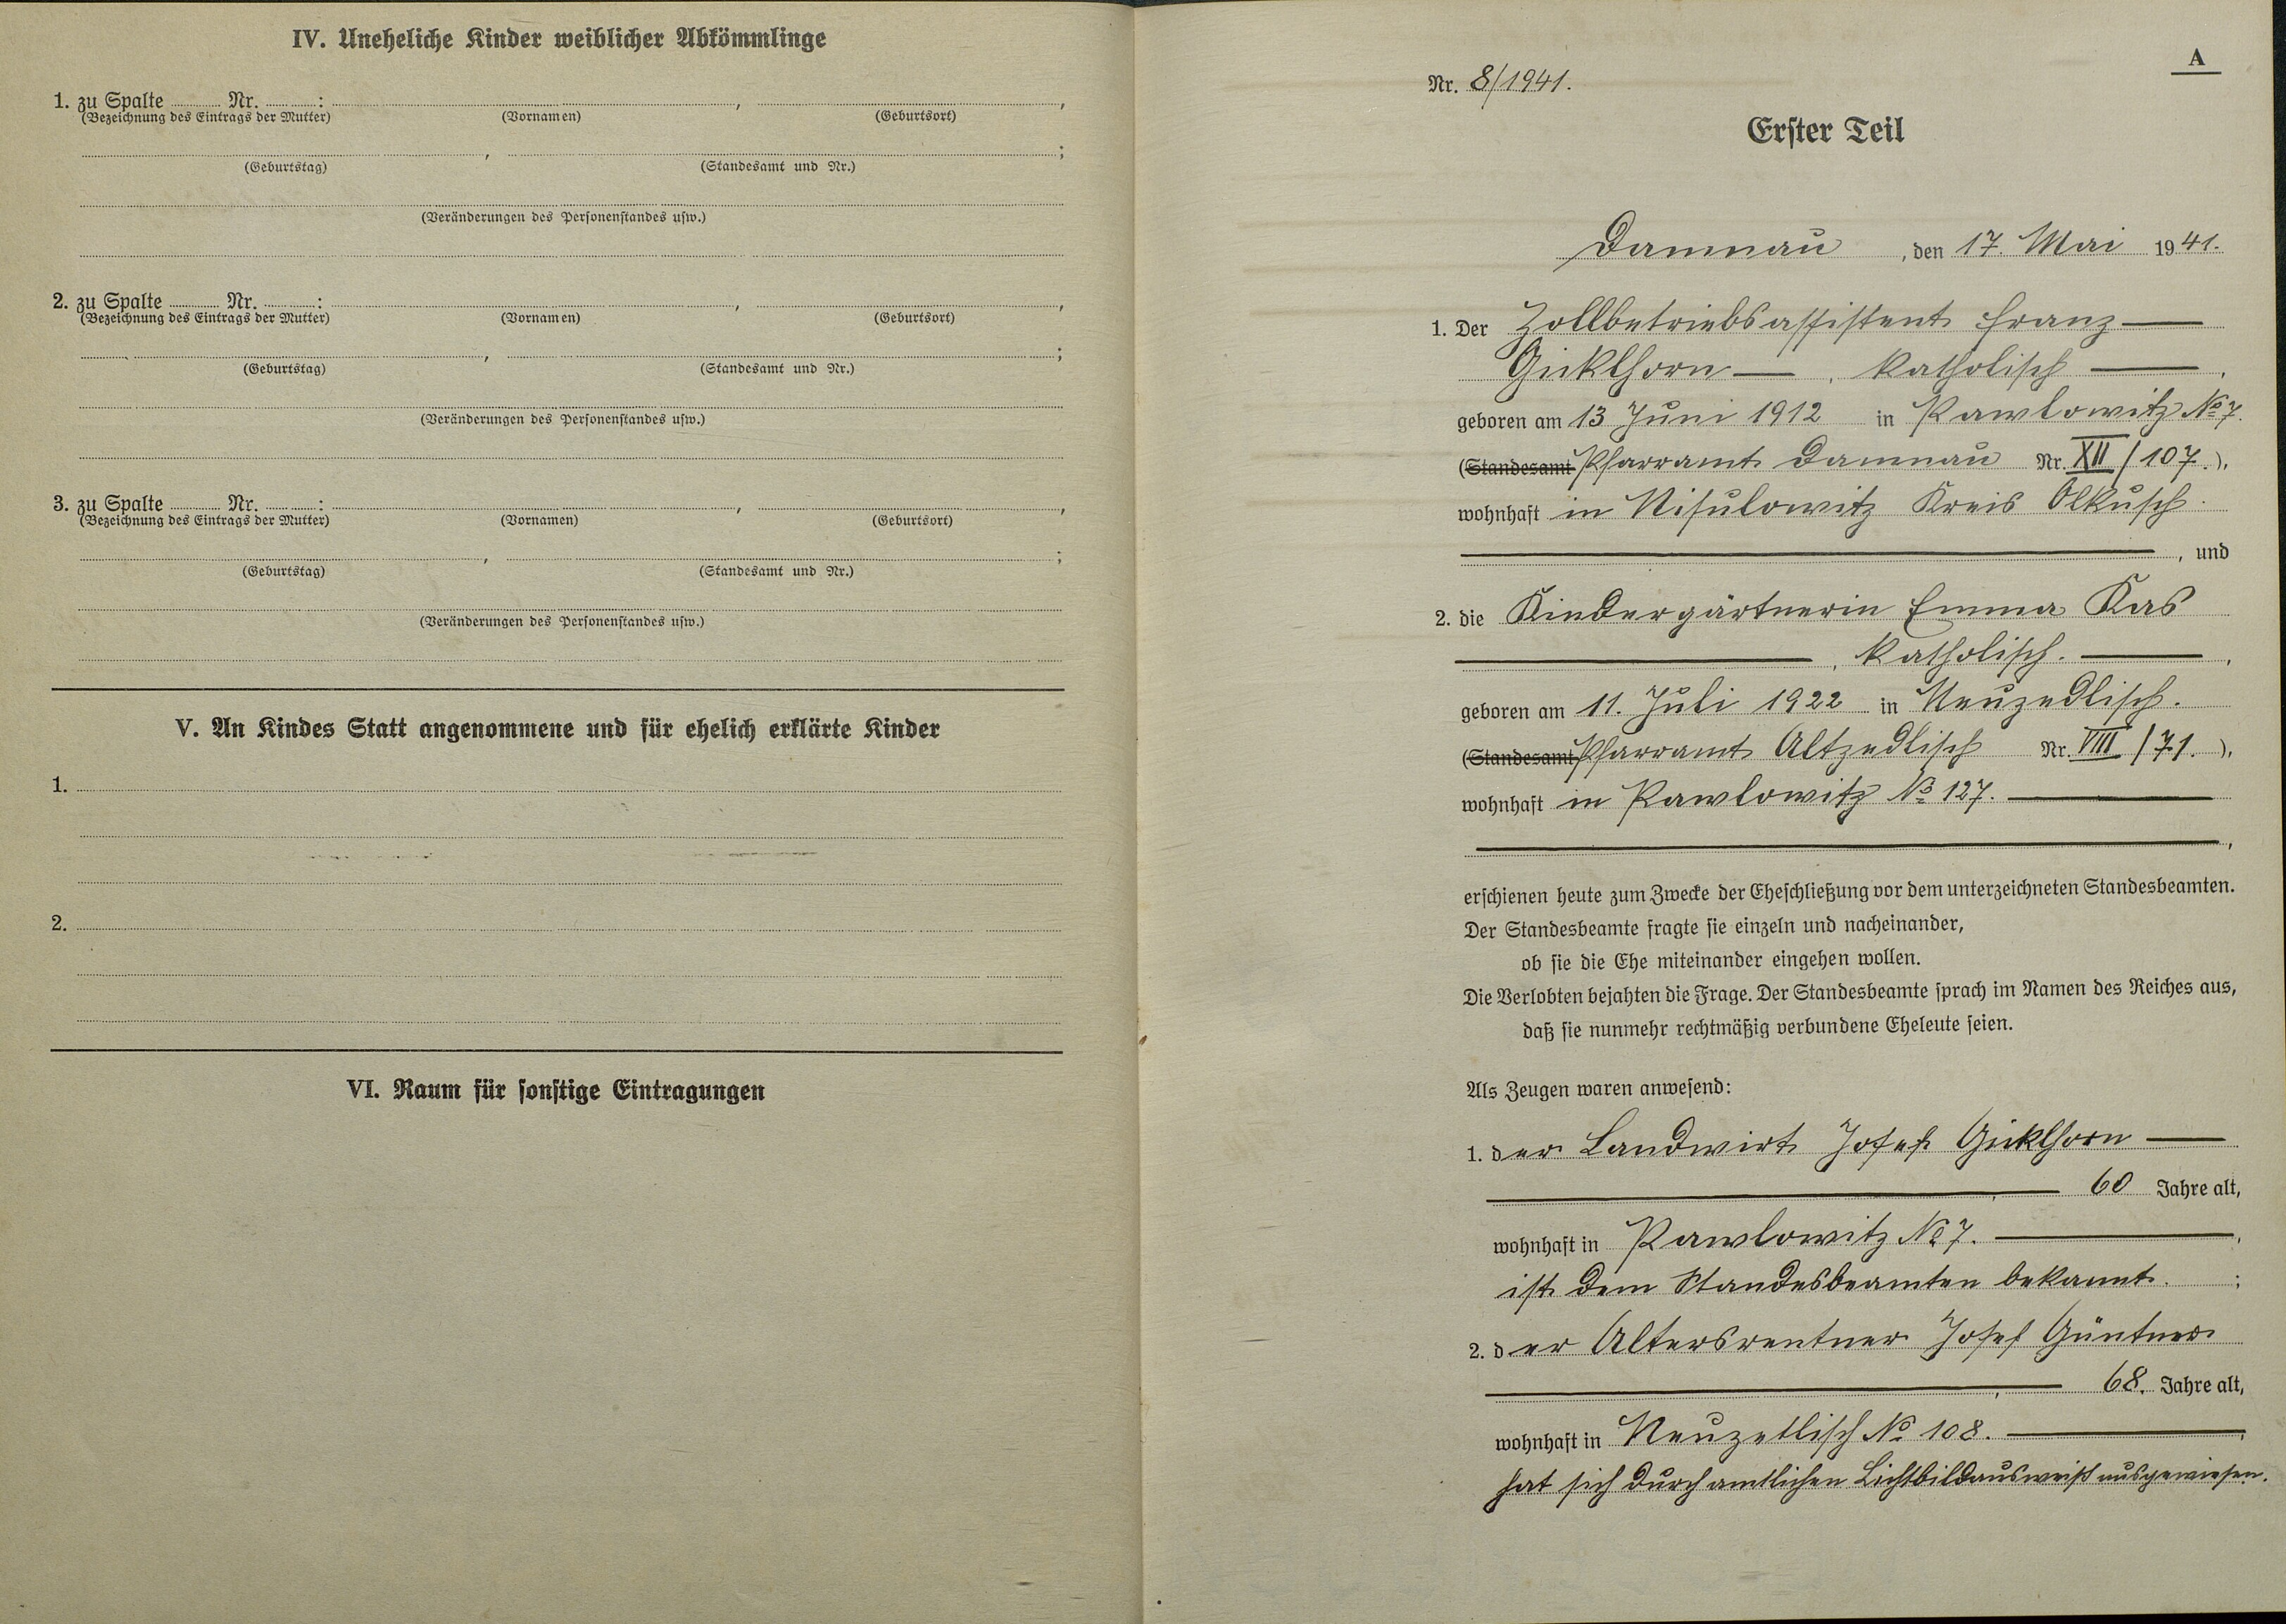 IV. Uneheliche Kinder weiblicher Abkömmlinge
1. zu Spalte Nr. : , ,
(Bezeichnung des Eintrags der Mutter) (Vornamen) (Geburtsort)
, ;
(Geburtstag) (Standesamt und Nr.)
(Veränderungen des Personenstandes usw.)
2. zu Spalte Nr. : , ,
(Bezeichnung des Eintrags der Mutter) (Vornamen) (Geburtsort)
, ;
(Geburtstag) (Standesamt und Nr.)
(Veränderungen des Personenstandes usw.)
3. zu Spalte Nr. : , ,
(Bezeichnung des Eintrags der Mutter) (Vornamen) (Geburtsort)
, ;
(Geburtstag) (Standesamt und Nr.)
(Veränderungen des Personenstandes usw.)
V. An Kindes Statt angenommene und für ehelich erklärte Kinder
1.
2.
VI. Raum für sonstige Eintragungen
A
Nr. 8/1941.
Erster Teil
Damnau, den 17. Mai 1941.
1. Der Zollbetriebsassistent Franz
Gicklhorn, katholisch,
geboren am 13 Juni 1912 in Pawlowitz No 7.
(Standesamt Pfarramt Damnau Nr. XII/107.),
wohnhaft in Kreis Olkusch.
, und
2. die Kindergärtnerin Emma Kas
, katholisch.,
geboren am 11. Juli 1922 in Neuzedlisch.
(Standesamt Pfarramt Altzedlisch Nr. VIII/71.),
wohnhaft in Pawlowitz No 127.
,
erschienen heute zum Zwecke der Eheschließung vor dem unterzeichneten Standesbeamten.
Der Standesbeamte fragte sie einzeln und nacheinander,
ob sie die Ehe miteinander eingehen wollen.
Die Verlobten bejahten die Frage. Der Standesbeamte sprach im Namen des Reiches aus,
daß sie nunmehr rechtmäßig verbundene Eheleute seien.
Als Zeugen waren anwesend:
1. der Landwirt Josef Gicklhorn
, 60 Jahre alt,
wohnhaft in Pawlowitz No 7.,
ist dem Standesbeamten bekannt. ;
2. der Altersrentner Josef Güntner
, 68. Jahre alt,
wohnhaft in Neuzetlisch No 108.,
hat sich durch amtlichen Lichtbildausweiß ausgewiesen.